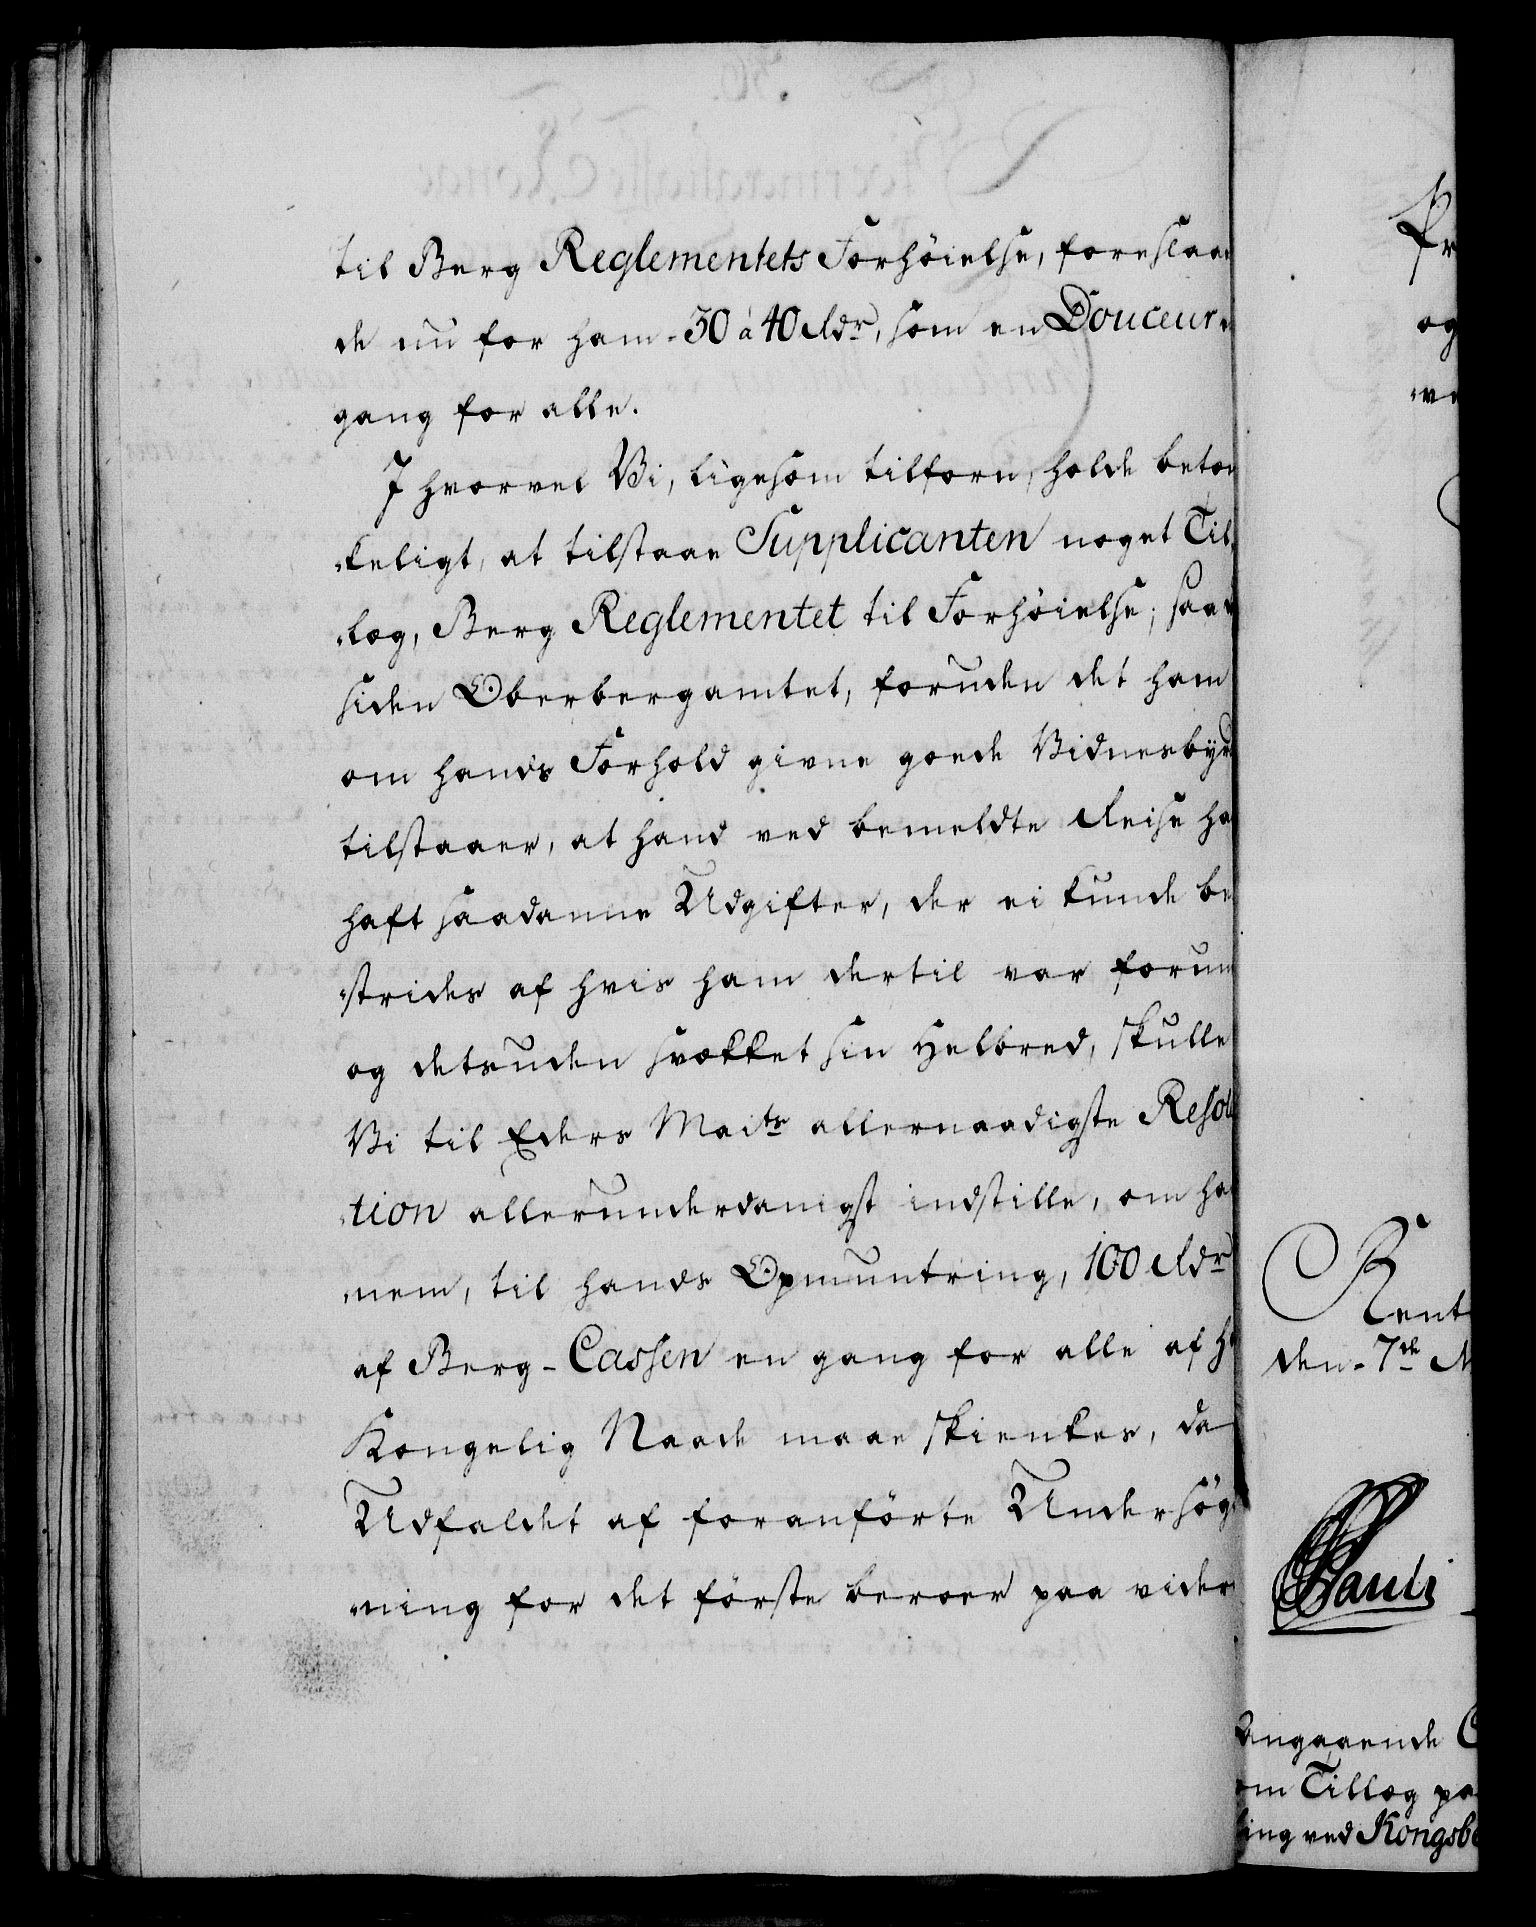 til Berg Reglementets Forhöielse, foreslaae
de nu for ham - 30 à 40 Rdr, som en Douceur e
gang for alle.
I hvorvel Vi, ligesom tilforn, holde betæn
keligt, at tilstaae Supplicanten noget Til
læg, Berg Reglementet til Forhöielse; saa
siden Oberbergamtet, foruden det ham
om hands Forhold givne goede Vidnesbyrd
tilstaaer, at hand ved bemeldte Reise ha
haft saadanne Udgifter, der ei kunde be
strides af hvis ham dertil var forun
og desuden svækket sin Helbred, skulle
Vi til Eders Maits allernaadigste Resolu
tion allerunderdanigst indstille, om ha
nem, til hands Opmuntring, 100 Rdr
af Berg-Cassen en gang for alle af H
Kongelig Naade maae skienkes, da
Udfaldet af foranförte Undersög
ning for det förste beroer paa vider
og
Rent
den - 7de M
Pauli
Angaaende C
om Tillæg pa
ing ved Kongsbe